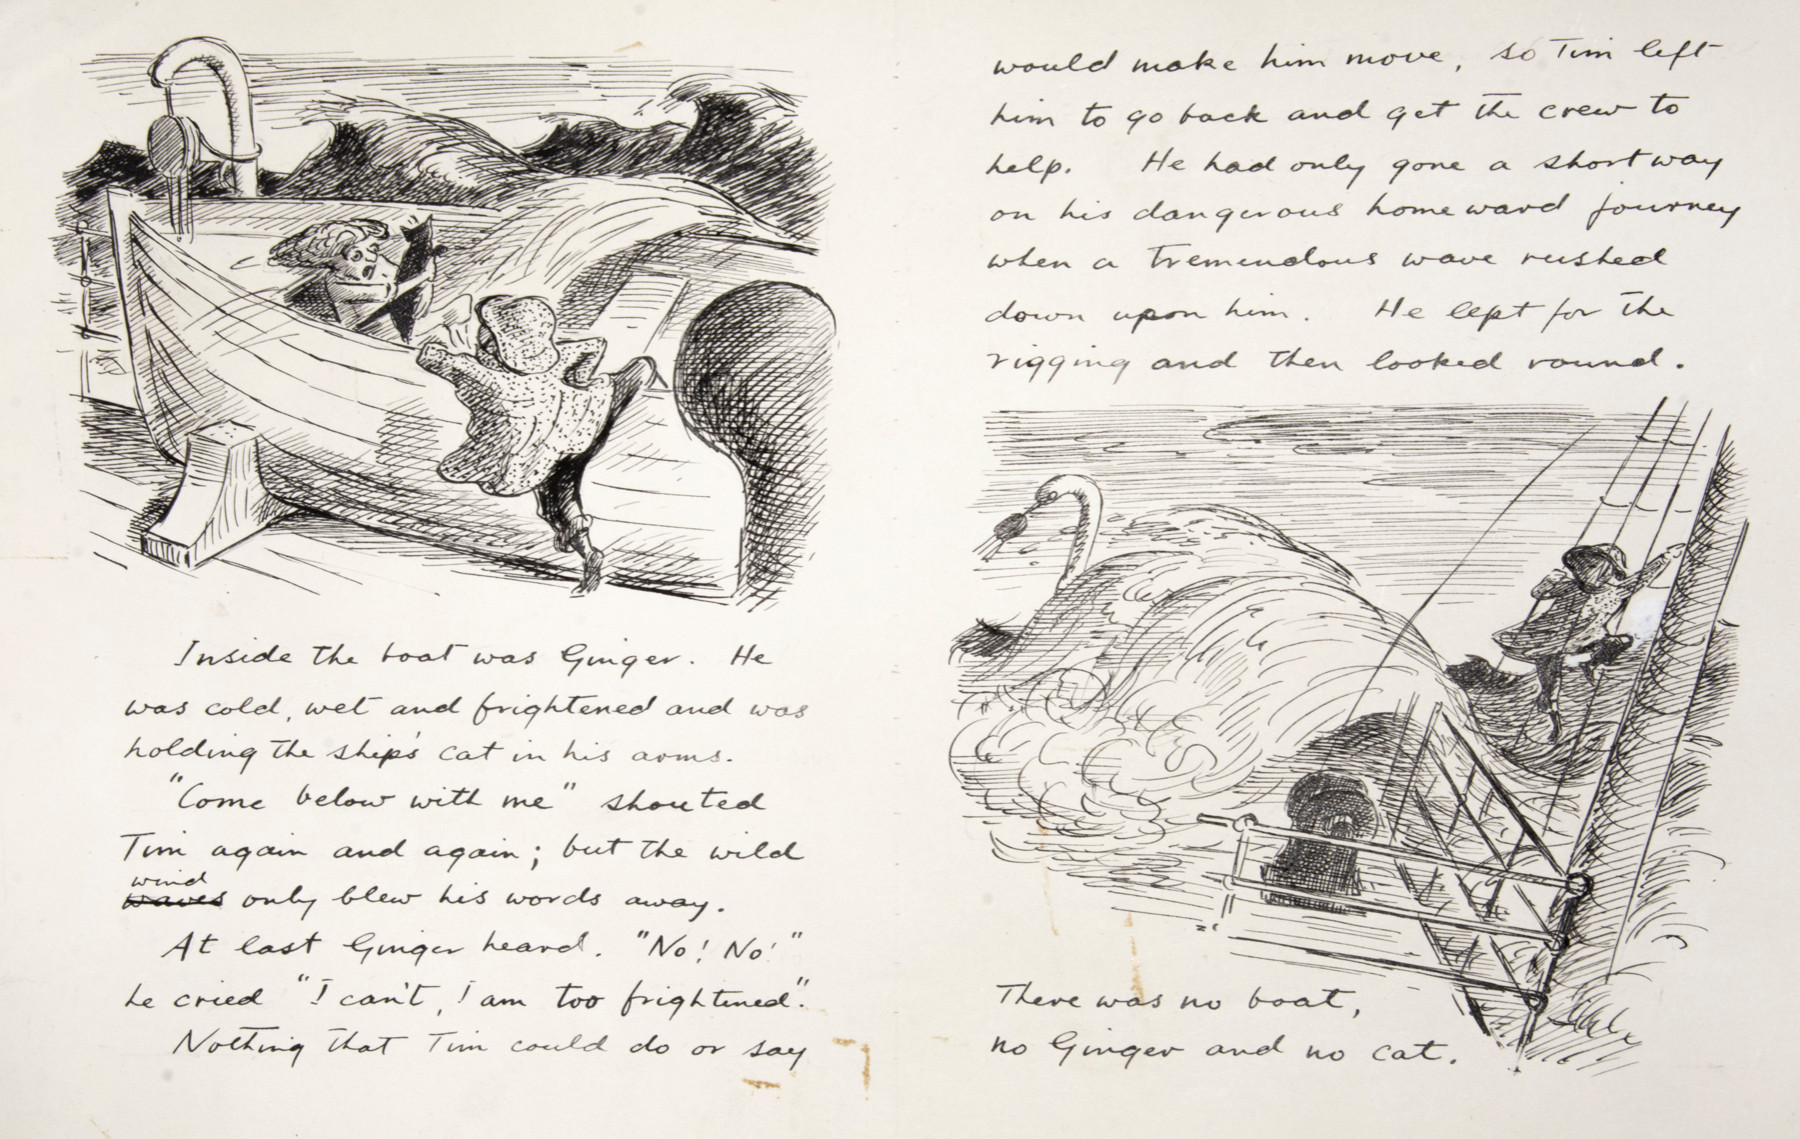 Inside the boat was Ginger. He
was cold, wet and frightened and was
holding the ship's cat in his arms.
"Come below with me" shouted
Tim again and again; but the wild
wind
waves only blew his words away.
At last Ginger heard. "No! No!"
he cried "I can't, I am too frightened".
Nothing that Tim could do or say
would make him move, so Tim left
him to go back and get the crew to
help. He had only gone a short way
on his dangerous homeward journey
when a tremendous wave rushed
down upon him. He lept for the
rigging and then looked round.
There was no boat,
no Ginger and no cat.